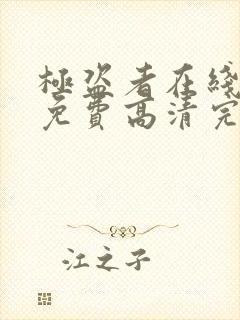 極盜者在綫
免費高清完
江之子